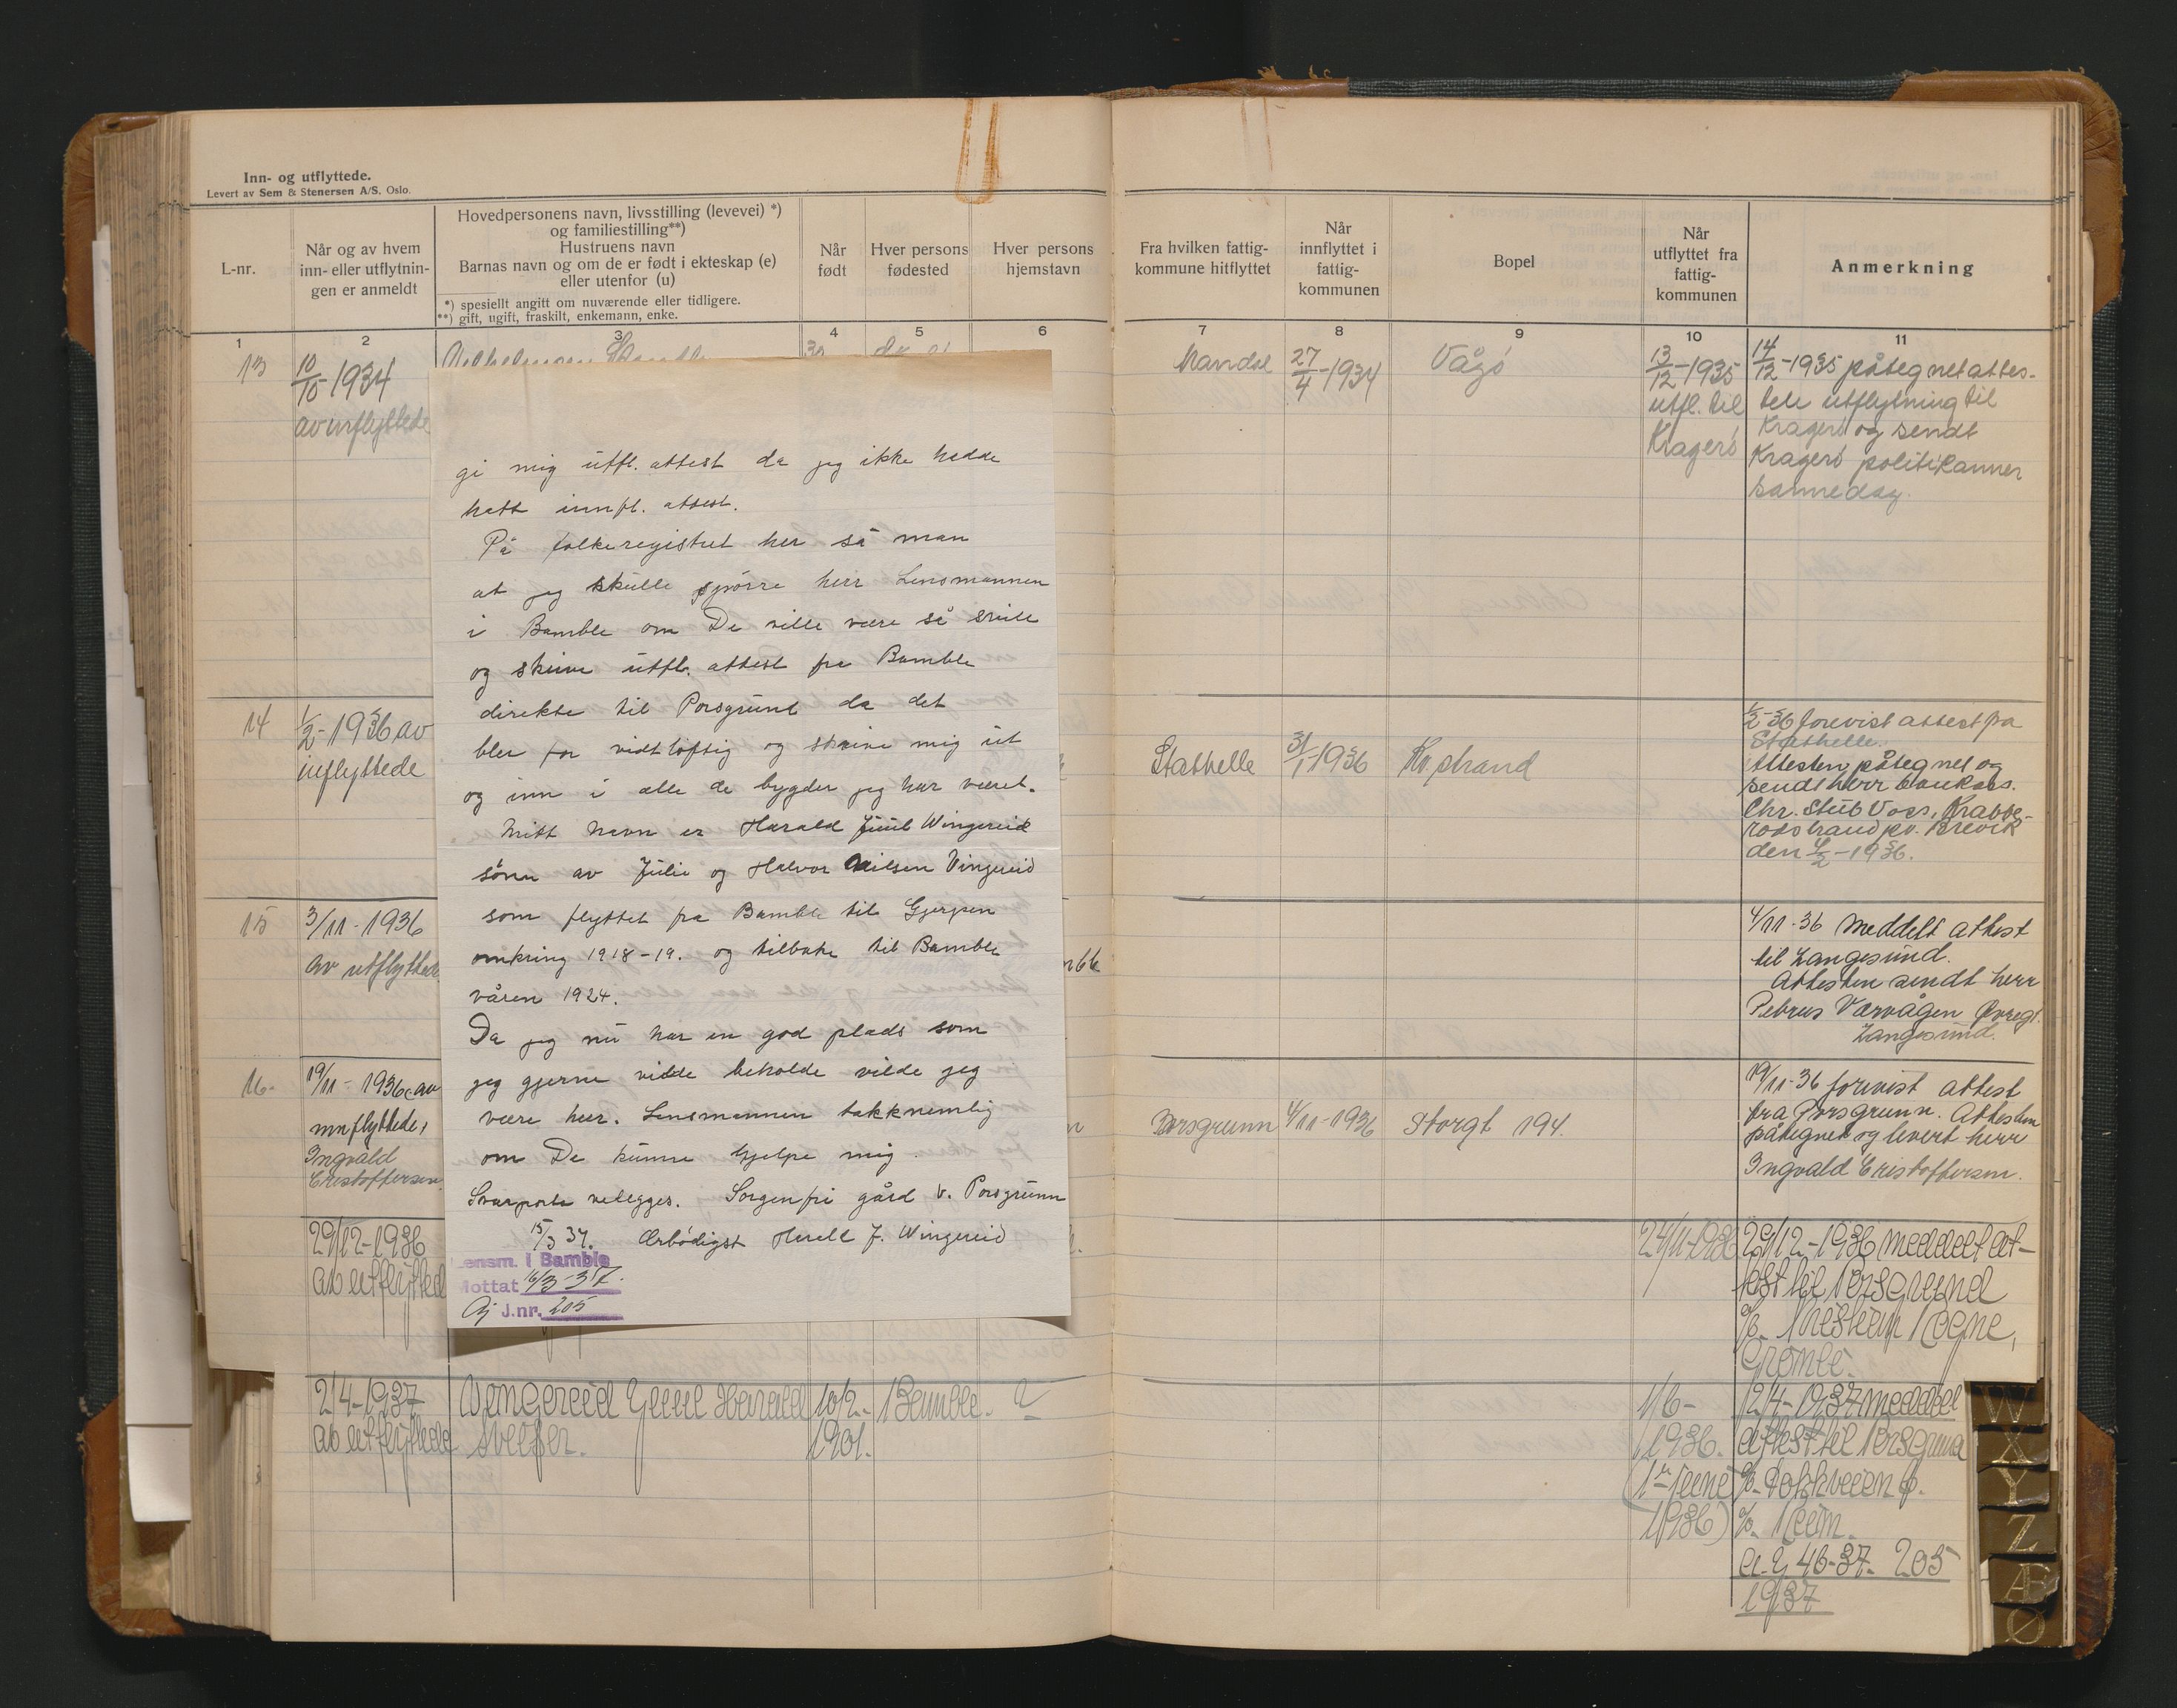 Inn- og utflyttede.
Levert av Sem & Stenersen A/S, Oslo.
L-nr.
Når og av hvem
inn- eller utflytnin-
gen er anmeldt
Hovedpersonens navn, livsstilling (levevei) *)
og familiestilling**)
Hustruens navn
Barnas navn og om de er født i ekteskap (e)
eller utenfor (u)
*) spesiellt angitt om nuværende eller tidligere.
**) gift, ugift, fraskilt, enkemann, enke.
Når
født
Hver persons
fødested
Hver persons
hjemstavn
1 2 3 4 5 6
13
10/10-1934
av innflyttede
14
1/2-1936 av
innflyttede
15
3/11-1936
av utflyttede
16.
19/11-1936 av
innflyttede,
Ingvald
Cristoffersen
29/12-1936
av utflyttede
2/4-1937
av utflyttede
Wingereid Juul Harald
sveiser.
10/2-
1901.
Bamble.
gi mig utfl. attest da jeg ikke hadde
hatt innfl. attest.
På folkeregistret her sa man
at jeg skulle spørre herr Lensmannen
i Bamble om De ville være så snill
og skrive utfl. attest fra Bamble
direkte til Porsgrund da det
bler for vidtløftig og skrive mig ut
og inn i alle de bygder jeg har været.
Mitt navn er Harald Juul Wingereid
sønn av Julie og Halvor Nilsen Vingereid
som flyttet fra Bamble til Gjerpen
omkring 1918-19. og tilbake til Bamble
våren 1924.
Da jeg nu har en god plads som
jeg gjerne vilde beholde vilde jeg
være herr. Lensmannen takknemlig
om De kunne hjelpe mig.
Svarporto vedlegges. Sorgenfri gård v. Porsgrunn
15/3 37. Ærbødigst Harald J. Wingereid
Lensm. i Bamble
Mottat 16/3-37.
J.nr. 205
Fra hvilken fattig-
kommune hitflyttet
Når
innflyttet i
fattig-
kommunen
Bopel
Når
utflyttet fra
fattig-
kommunen
Anmerkning
7 8 9 10 11
Mandal
27/4-1934
Vågø
13/12-1935
utfl. til
Kragerø
14/12-1935 påtegnet attes-
tele utflytning til
Kragerø og sendt
Kragerø politikammer
samme dag.
Stathelle
31/1-1936
Kv. strand
1/2-36 forevist attest fra
Stathelle.
Attesten påtegnet og
sendt herr bankkas.
Chr. Stub Voss, Krabbe-
rødstrand pr. Brevik
den 4/2-1936.
4/11-36 meddelt attest
til Langesund.
Attesten sendt herr
Petrus Værvågen Øvregt.
Langesund.
Porsgrunn
4/11-1936
Storgt 194.
19/11-36 forevist attest
fra Porsgrunn. Attesten
påtegnet og levert herr
Ingvald Cristoffersen.
24/11-1936
29/12-1936 meddelt at-
test til Porsgrund
1/6-
1936.
(1ste juni
1936)
2/4-1937 meddelt
attest til Porsgrund
46-37. 205
1937
W
X
Y
Z
Æ
Ø